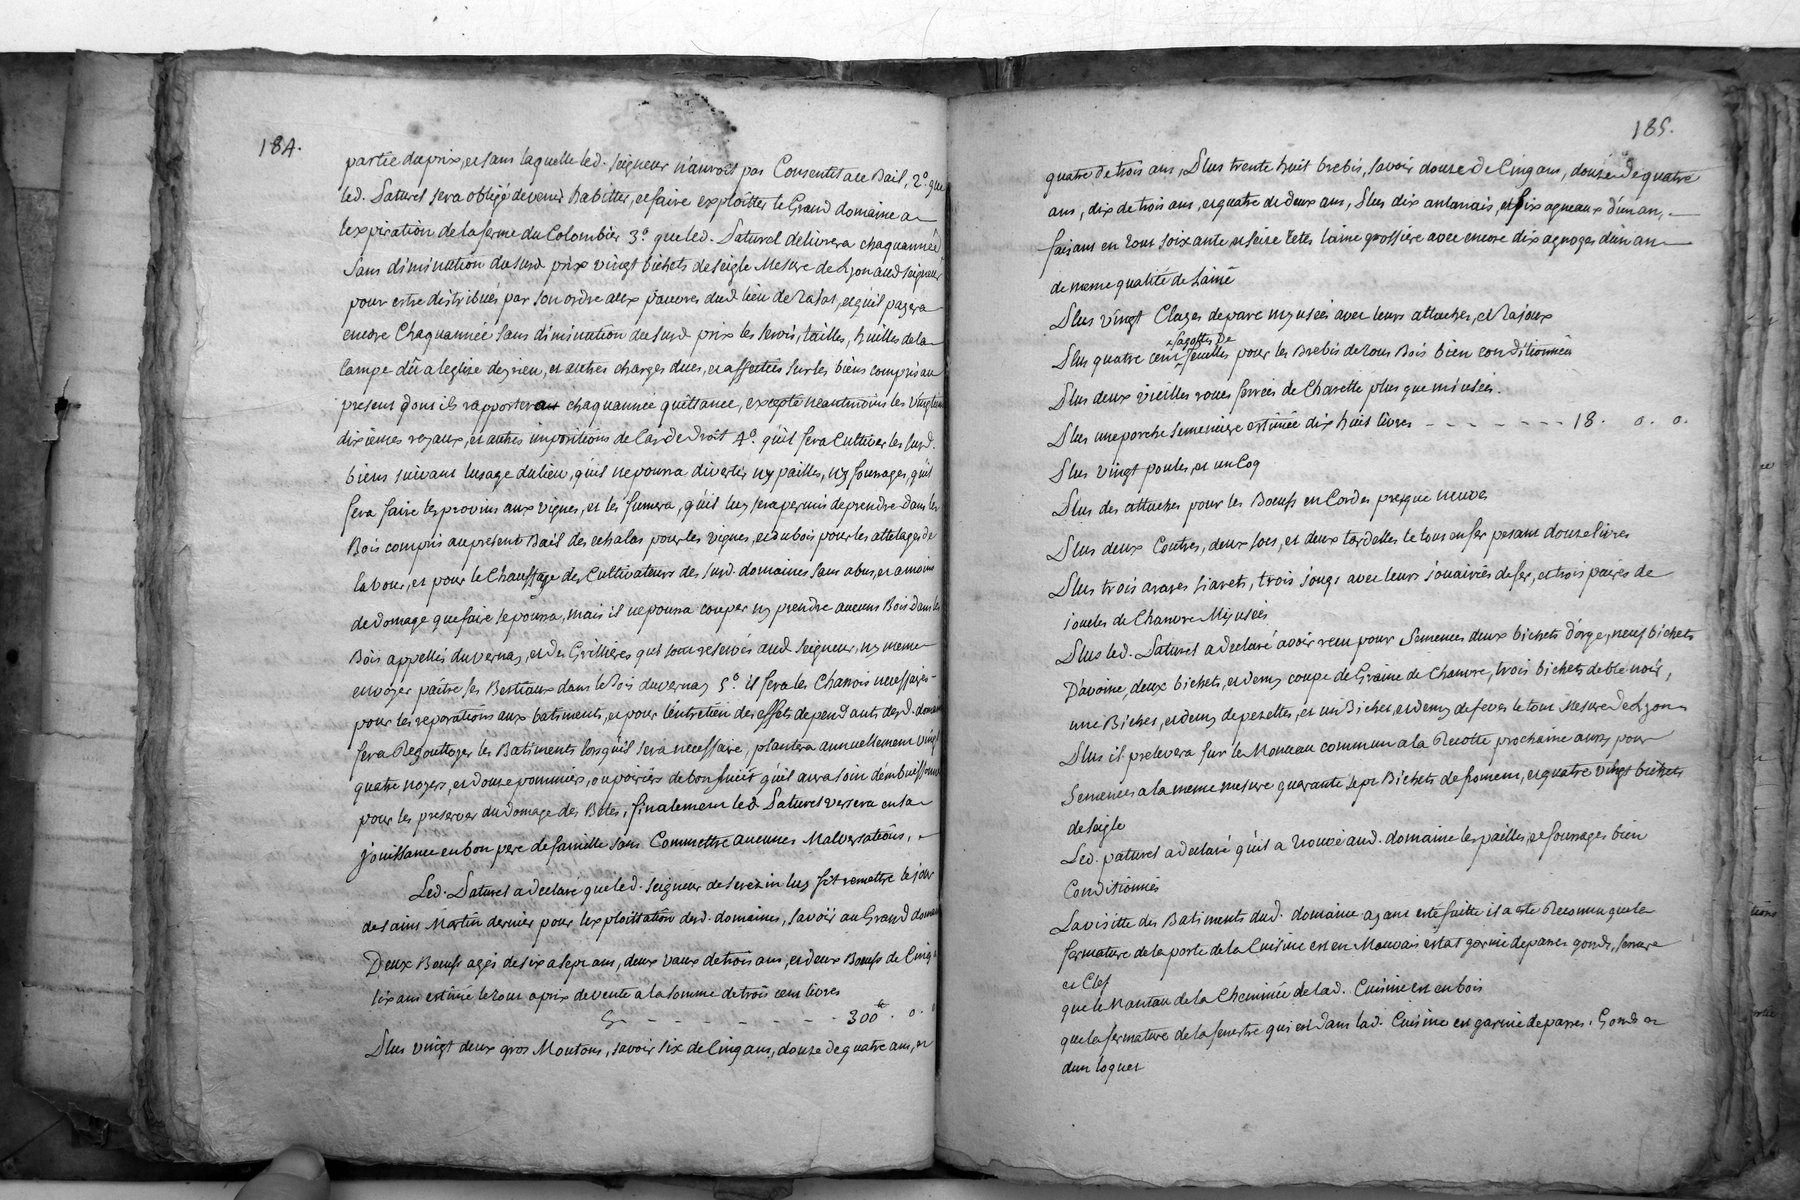 184.
partie du prix, et sans laquelle led. seigneur n'auroit pas Consentit a ce Bail, 2.° que
led. Paturel sera obligé de venir habitter, et faire exploitter le Grand domaine a
lexpiration de la ferme du Colombier 3.° que led. Paturel delivrera chaquannée
sans diminution du susd. prix vingt bichets de seigle Mesure de Lyon aud seigneur
pour estre distribués par son ordre aux pauvres dud lieu de, et qu'il payera
encore Chaquannée sans diminution du susd. prix les servis, tailles, huilles de la
lampe dû a leglise deyrieu, et autres charges dues, et affectées sur les biens compris au
present dont ils rapportera chaquannée quittance, excepté neantmoins les vingtiemes
dixiemes royaux, et autres impositions de Cas de droit 4.° qu'il fera Cultiver les susd.
biens suivant lusage du lieu, qu'il ne pourra divertir ny pailles, ny fourrages, qu'il
fera faire les provins aux vignes, et les fumera, qu'il luy sera permis de prendre dans les
Bois compris au present Bail des echalas pour les vignes, et du bois pour les attelages de
labour, et pour le Chauffage des Cultivateurs des susd. domaines sans abus, et a moins
de domage que faire se pourra, mais il ne pourra couper ny prendre aucuns Bois dans les
Bois appellés du vernay, et des Grillieres qui sont reservés aud seigneur, ny meme
envoyer paître ses Bestiaux dans le Bois du vernay 5.° il fera les Charrois necessaires
pour les reparations aux batiments, et pour l'entretien des effets dependants desd. domaines
fera Regouttoyer les Batiments lorsquil sera necessaire, plantera annuellement vingt
quatre noyers, et douze pommiers, ou poiriers de bon fruit qu'il aura soin dembuissonner
pour les preserver du domage des Bêtes, finalement led Paturel versera en sa
jouissance en bon pere de famille sans Commettre aucunes Malversations,
Led. Paturel a declaré que led. seigneur de serezin luy fit remettre le jour
de saint Martin dernier pour lexploittation desd. domaines, savoir au Grand domaine
Deux Boeufs agés de six a sept ans, deux vaux de trois ans, et deux Boeufs de Cinq a
six ans estimé le tout a prix de vente a la somme de trois cent livres
Cy - - - - - - - 300tt. 0. 0
Plus vingt deux gros Moutons, savoir six de Cinq ans, douze de quatre ans, et
185.
quatre de trois ans, Plus trente huit brebis, savoir douze de Cinq ans, douze de quatre
ans, dix de trois ans, et quatre de deux ans, Plus dix antanais, et six agneaux d'un an,
faisant en tout soixante et seize têtes laine grossiere avec encore dix agnoges d'un an
de meme qualité de Laine
Plus vingt Clayes de parc my usées avec leurs attaches, et Rajoux
fagottes de
Plus quatre cent feuilles pour les Brebis de tous Bois bien conditionnées
Plus deux vieilles roues ferrées de Charette plus que mi usées.
Plus une porche semeniere estimée dix huit livres - - - - - - - 18. 0. 0.
Plus vingt poules, et un Coq
Plus des attaches pour les Boeufs en Cordes presque neuves
Plus deux Coutres, deux socs, et deux tardelles le tout en fer pesant douze livres
Plus trois araires, trois jougs avec leurs de fer, et trois paires de
joucles de Chanvre My usées
Plus led. Paturel a declaré avoir receu pour Semences deux bichets d'orge, neuf bichets
D'avoine, deux bichets, et demy coupe de Graine de Chanvre, trois bichets de blé noir,
une Bichet, et demy de pezettes, et un Bichet, et demy de feves le tout Mesure de Lyon
Plus il prelevera sur le Monceau commun a la Recolte prochaine aussy pour
Semences a la meme mesure quarante sept Bichets de froment, et quatre vingt bichets
de seigle
Led. paturel a declaré qu'il a trouvé aud. domaine les pailles, et fourrages bien
Conditionnés
La visitte des Batiments dud. domaine ayant esté faitte il a eté Reconnu que la
fermature de la porte de la Cuisine est en Mauvais estat garnie de parres gonds, serrure
et Clef
que le Mantau de la Cheminée de lad. Cuisine est en bois
que la fermature de la fenestre qui est dans lad. Cuisine est garnie de parres, Gonds et
dun loquet